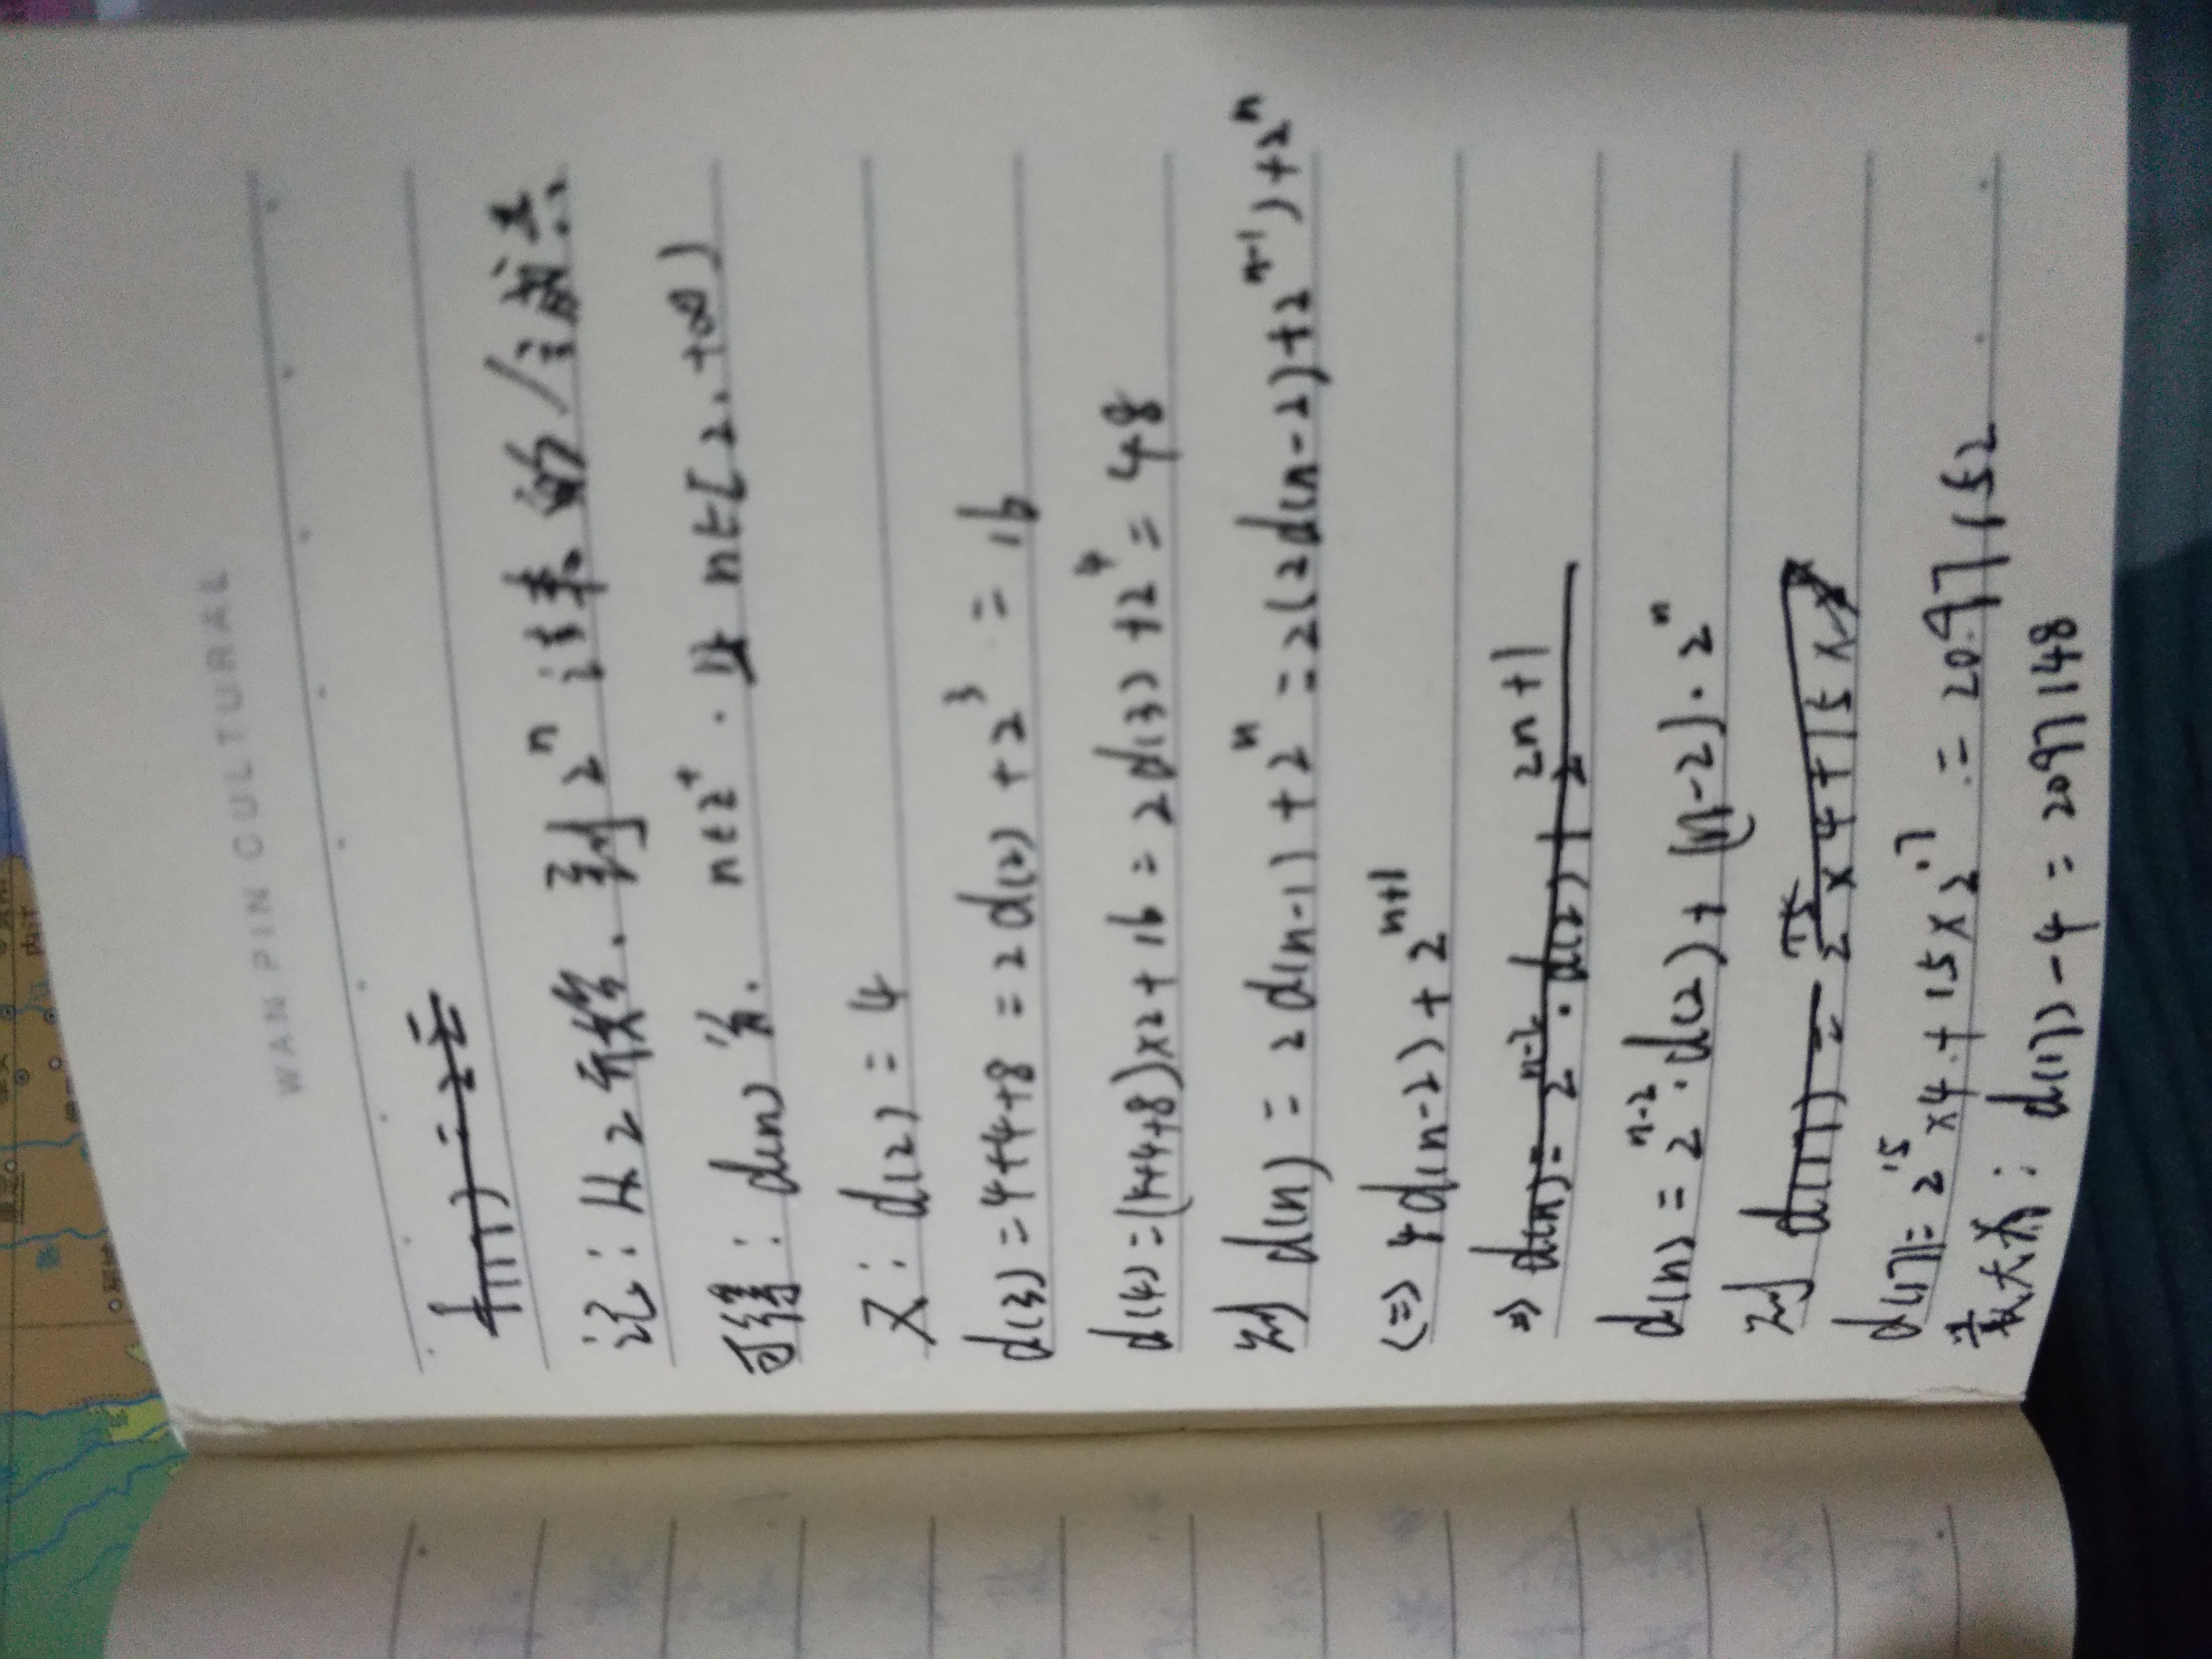 WAN PIN CULTURAL
记：从2开始．到2ⁿ 结束的/合成点
可得：d(n)分． n∈z⁺．且 n∈[2，+∞)
又：d(2)=4
d(3)=4+4+8=2d(2)+2³=16
d(4)=(4+4+8)×2+16=2d(3)+2⁴=48
则 d(n)=2d(n-1)+2ⁿ=2(2d(n-2)+2ⁿ⁻¹)+2ⁿ
(=)4d(n-2)+2ⁿ⁺¹
⇒ d(n)=2ⁿ⁻²·d(2)+2²ⁿ⁺¹
d(n)=2ⁿ⁻²·d(2)+(n-2)·2ⁿ
则 d(17)=2¹⁵×4+15×
d(17)=2¹⁵×4+15×2¹⁷=2097152
最大为：d(17)-4=2097148